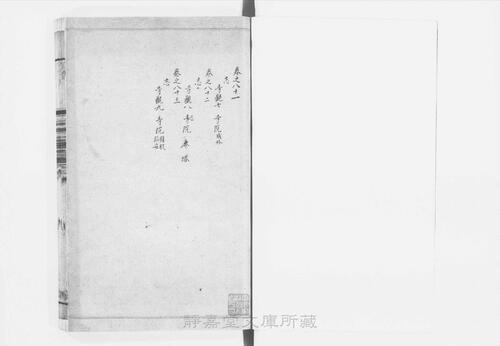 卷之八十一
志
寺觀七 寺院城外
卷之八十二
志
寺觀八 寺院 庵 塔
卷之八十三
志
寺觀九 寺院
靜嘉堂文庫所藏